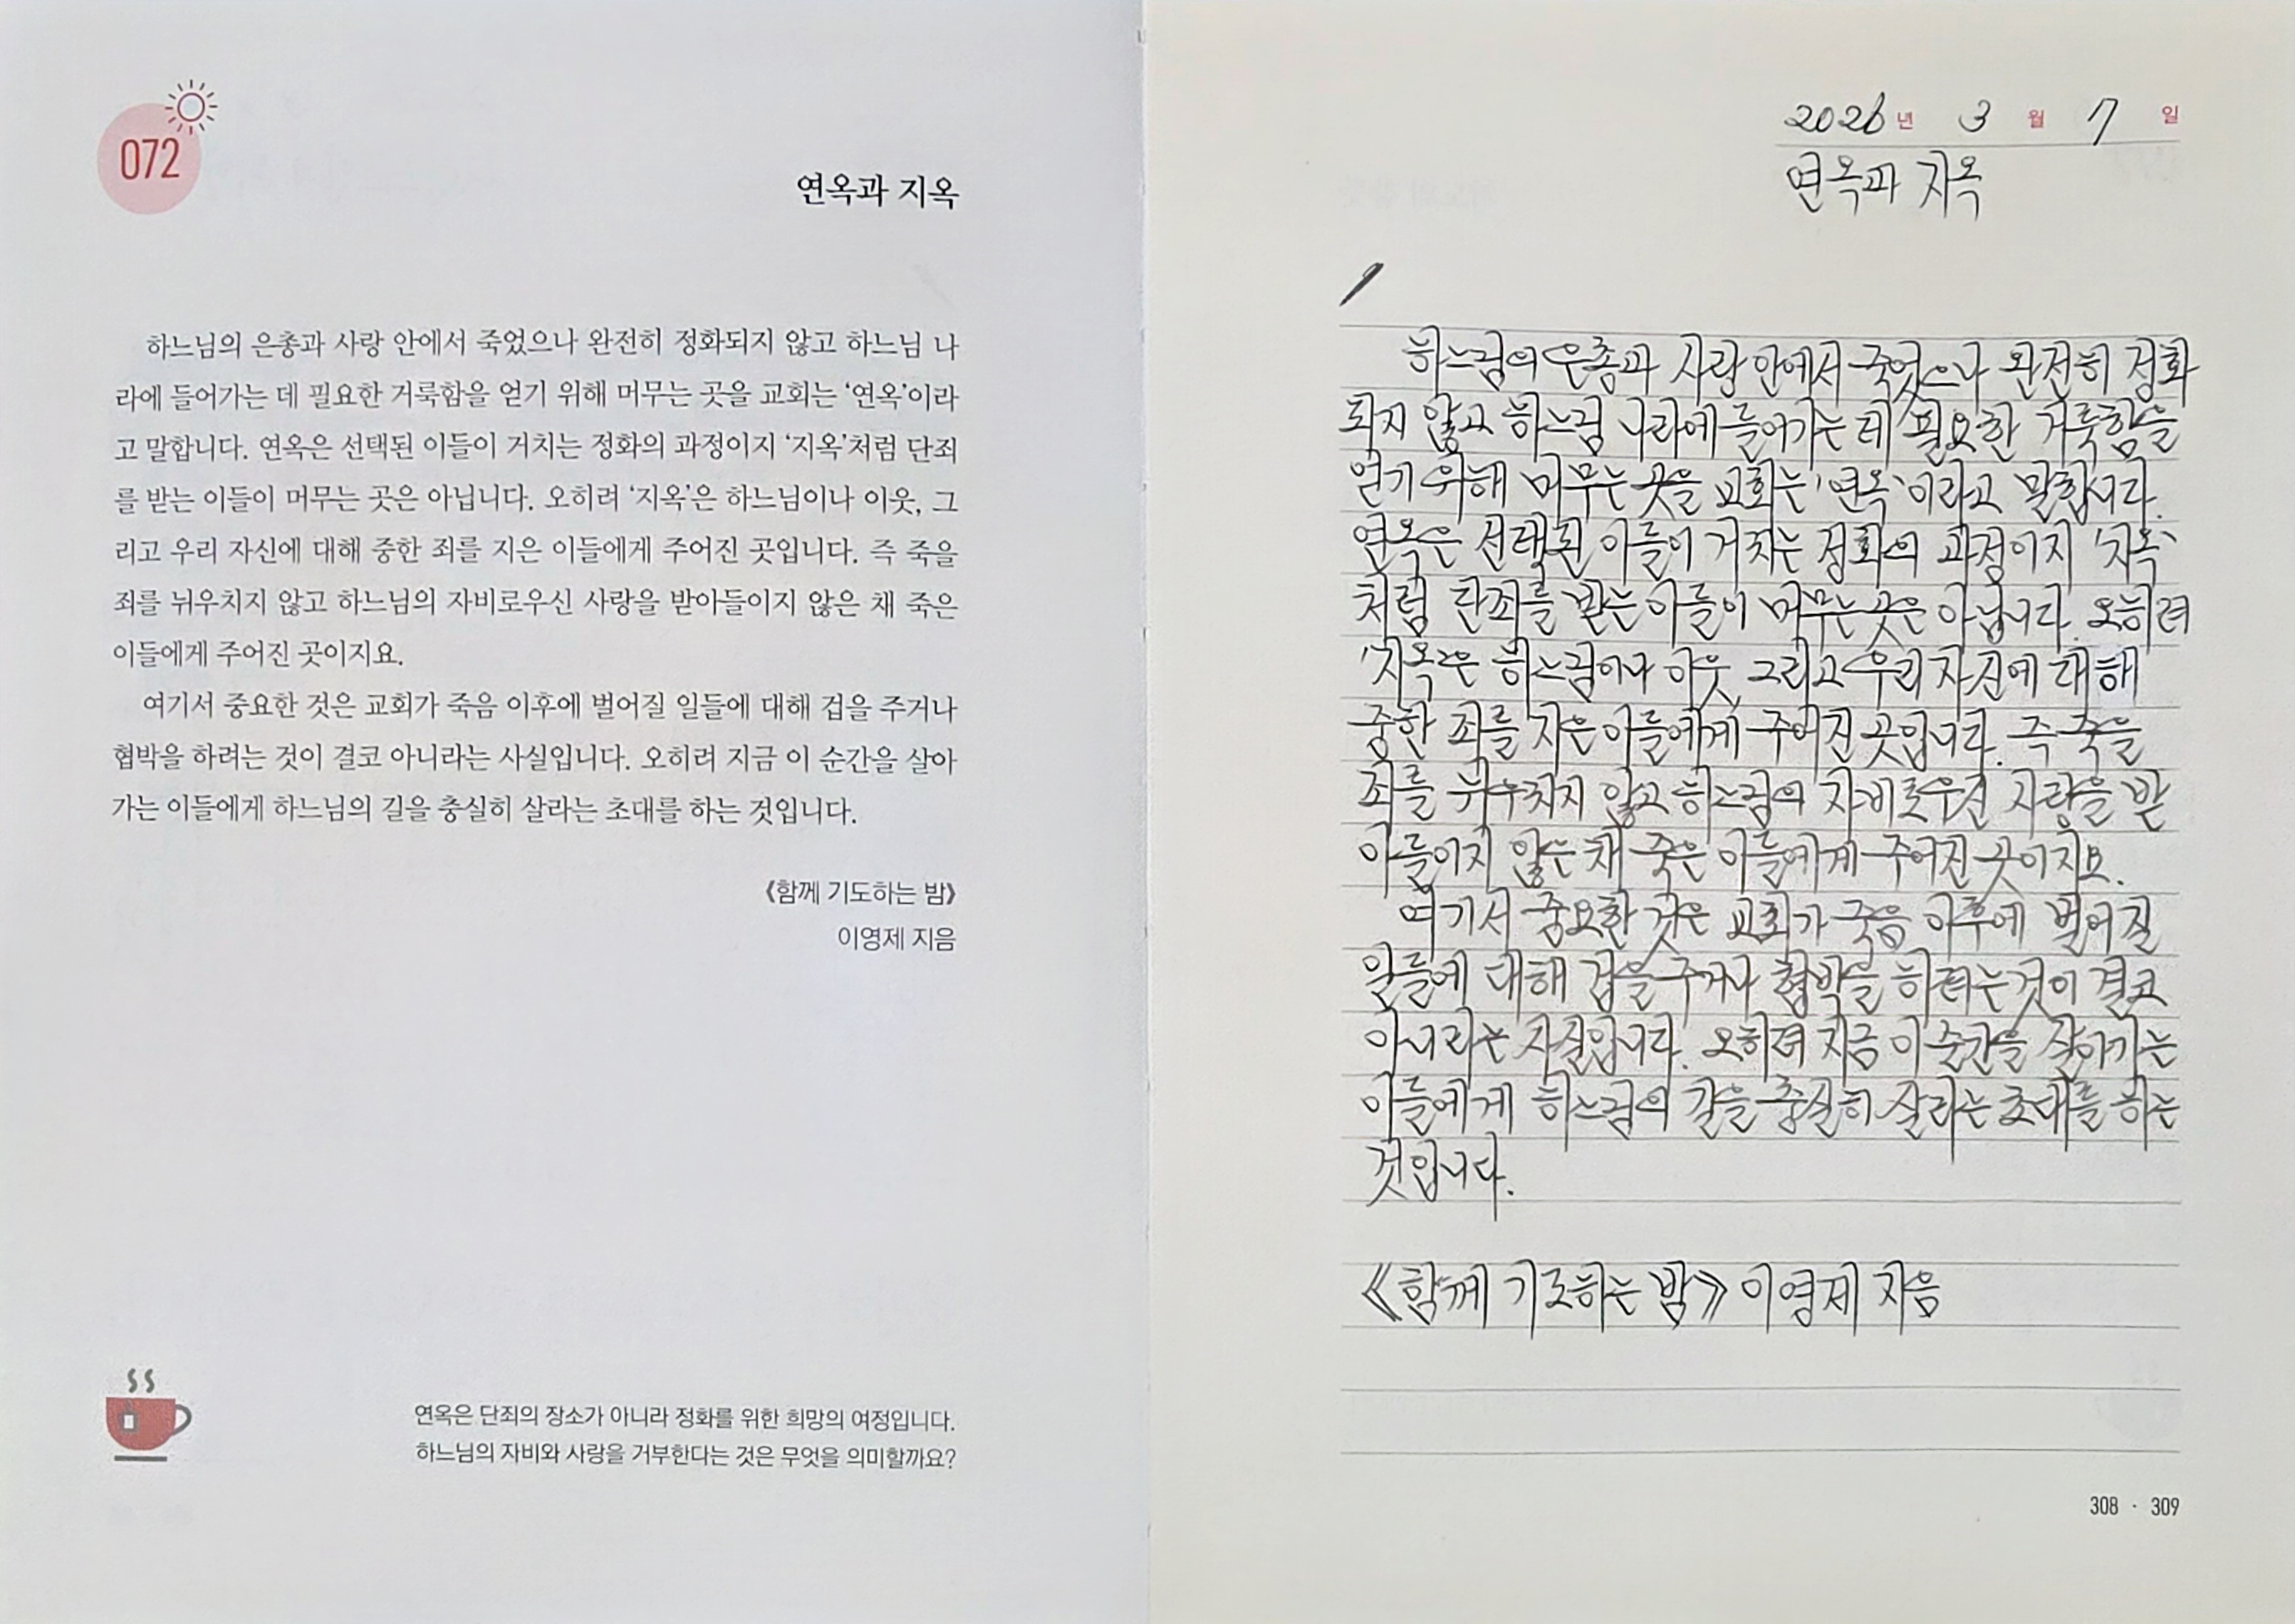 072
연옥과 지옥
하느님의 은총과 사랑 안에서 죽었으나 완전히 정화되지 않고 하느님 나
라에 들어가는 데 필요한 거룩함을 얻기 위해 머무는 곳을 교회는 ‘연옥’이라
고 말합니다. 연옥은 선택된 이들이 거치는 정화의 과정이지 ‘지옥’처럼 단죄
를 받는 이들이 머무는 곳은 아닙니다. 오히려 ‘지옥’은 하느님이나 이웃, 그
리고 우리 자신에 대해 중한 죄를 지은 이들에게 주어진 곳입니다. 즉 죽을
죄를 뉘우치지 않고 하느님의 자비로우신 사랑을 받아들이지 않은 채 죽은
이들에게 주어진 곳이지요.
여기서 중요한 것은 교회가 죽음 이후에 벌어질 일들에 대해 겁을 주거나
협박을 하려는 것이 결코 아니라는 사실입니다. 오히려 지금 이 순간을 살아
가는 이들에게 하느님의 길을 충실히 살라는 초대를 하는 것입니다.
《함께 기도하는 밤》
이영제 지음
연옥은 단죄의 장소가 아니라 정화를 위한 희망의 여정입니다.
하느님의 자비와 사랑을 거부한다는 것은 무엇을 의미할까요?
2026년 3월 7일
연옥과 지옥
하느님의 은총과 사랑 안에서 죽었으나 완전히 정화
되지 않고 하느님 나라에 들어가는 데 필요한 거룩함을
얻기 위해 머무는 곳을 교회는 '연옥'이라고 말합니다.
연옥은 선택된 이들이 거치는 정화의 과정이지 '지옥'
처럼 단죄를 받는 이들이 머무는 곳은 아닙니다. 오히려
'지옥'은 하느님이나 이웃, 그리고 우리 자신에 대해
중한 죄를 지은 이들에게 주어진 곳입니다. 즉 죽을
죄를 뉘우치지 않고 하느님의 자비로우신 사랑을 받
아들이지 않는 채 죽은 이들에게 주어진 곳이지요.
여기서 중요한 것은 교회가 죽음 이후에 벌어질
일들에 대해 겁을 주거나 협박을 하려는 것이 결코
아니라는 사실입니다. 오히려 지금 이 순간을 살아가는
이들에게 하느님의 길을 충실히 살라는 초대를 하는
것입니다.
《함께 기도하는 밤》 이영제 지음
308 · 309